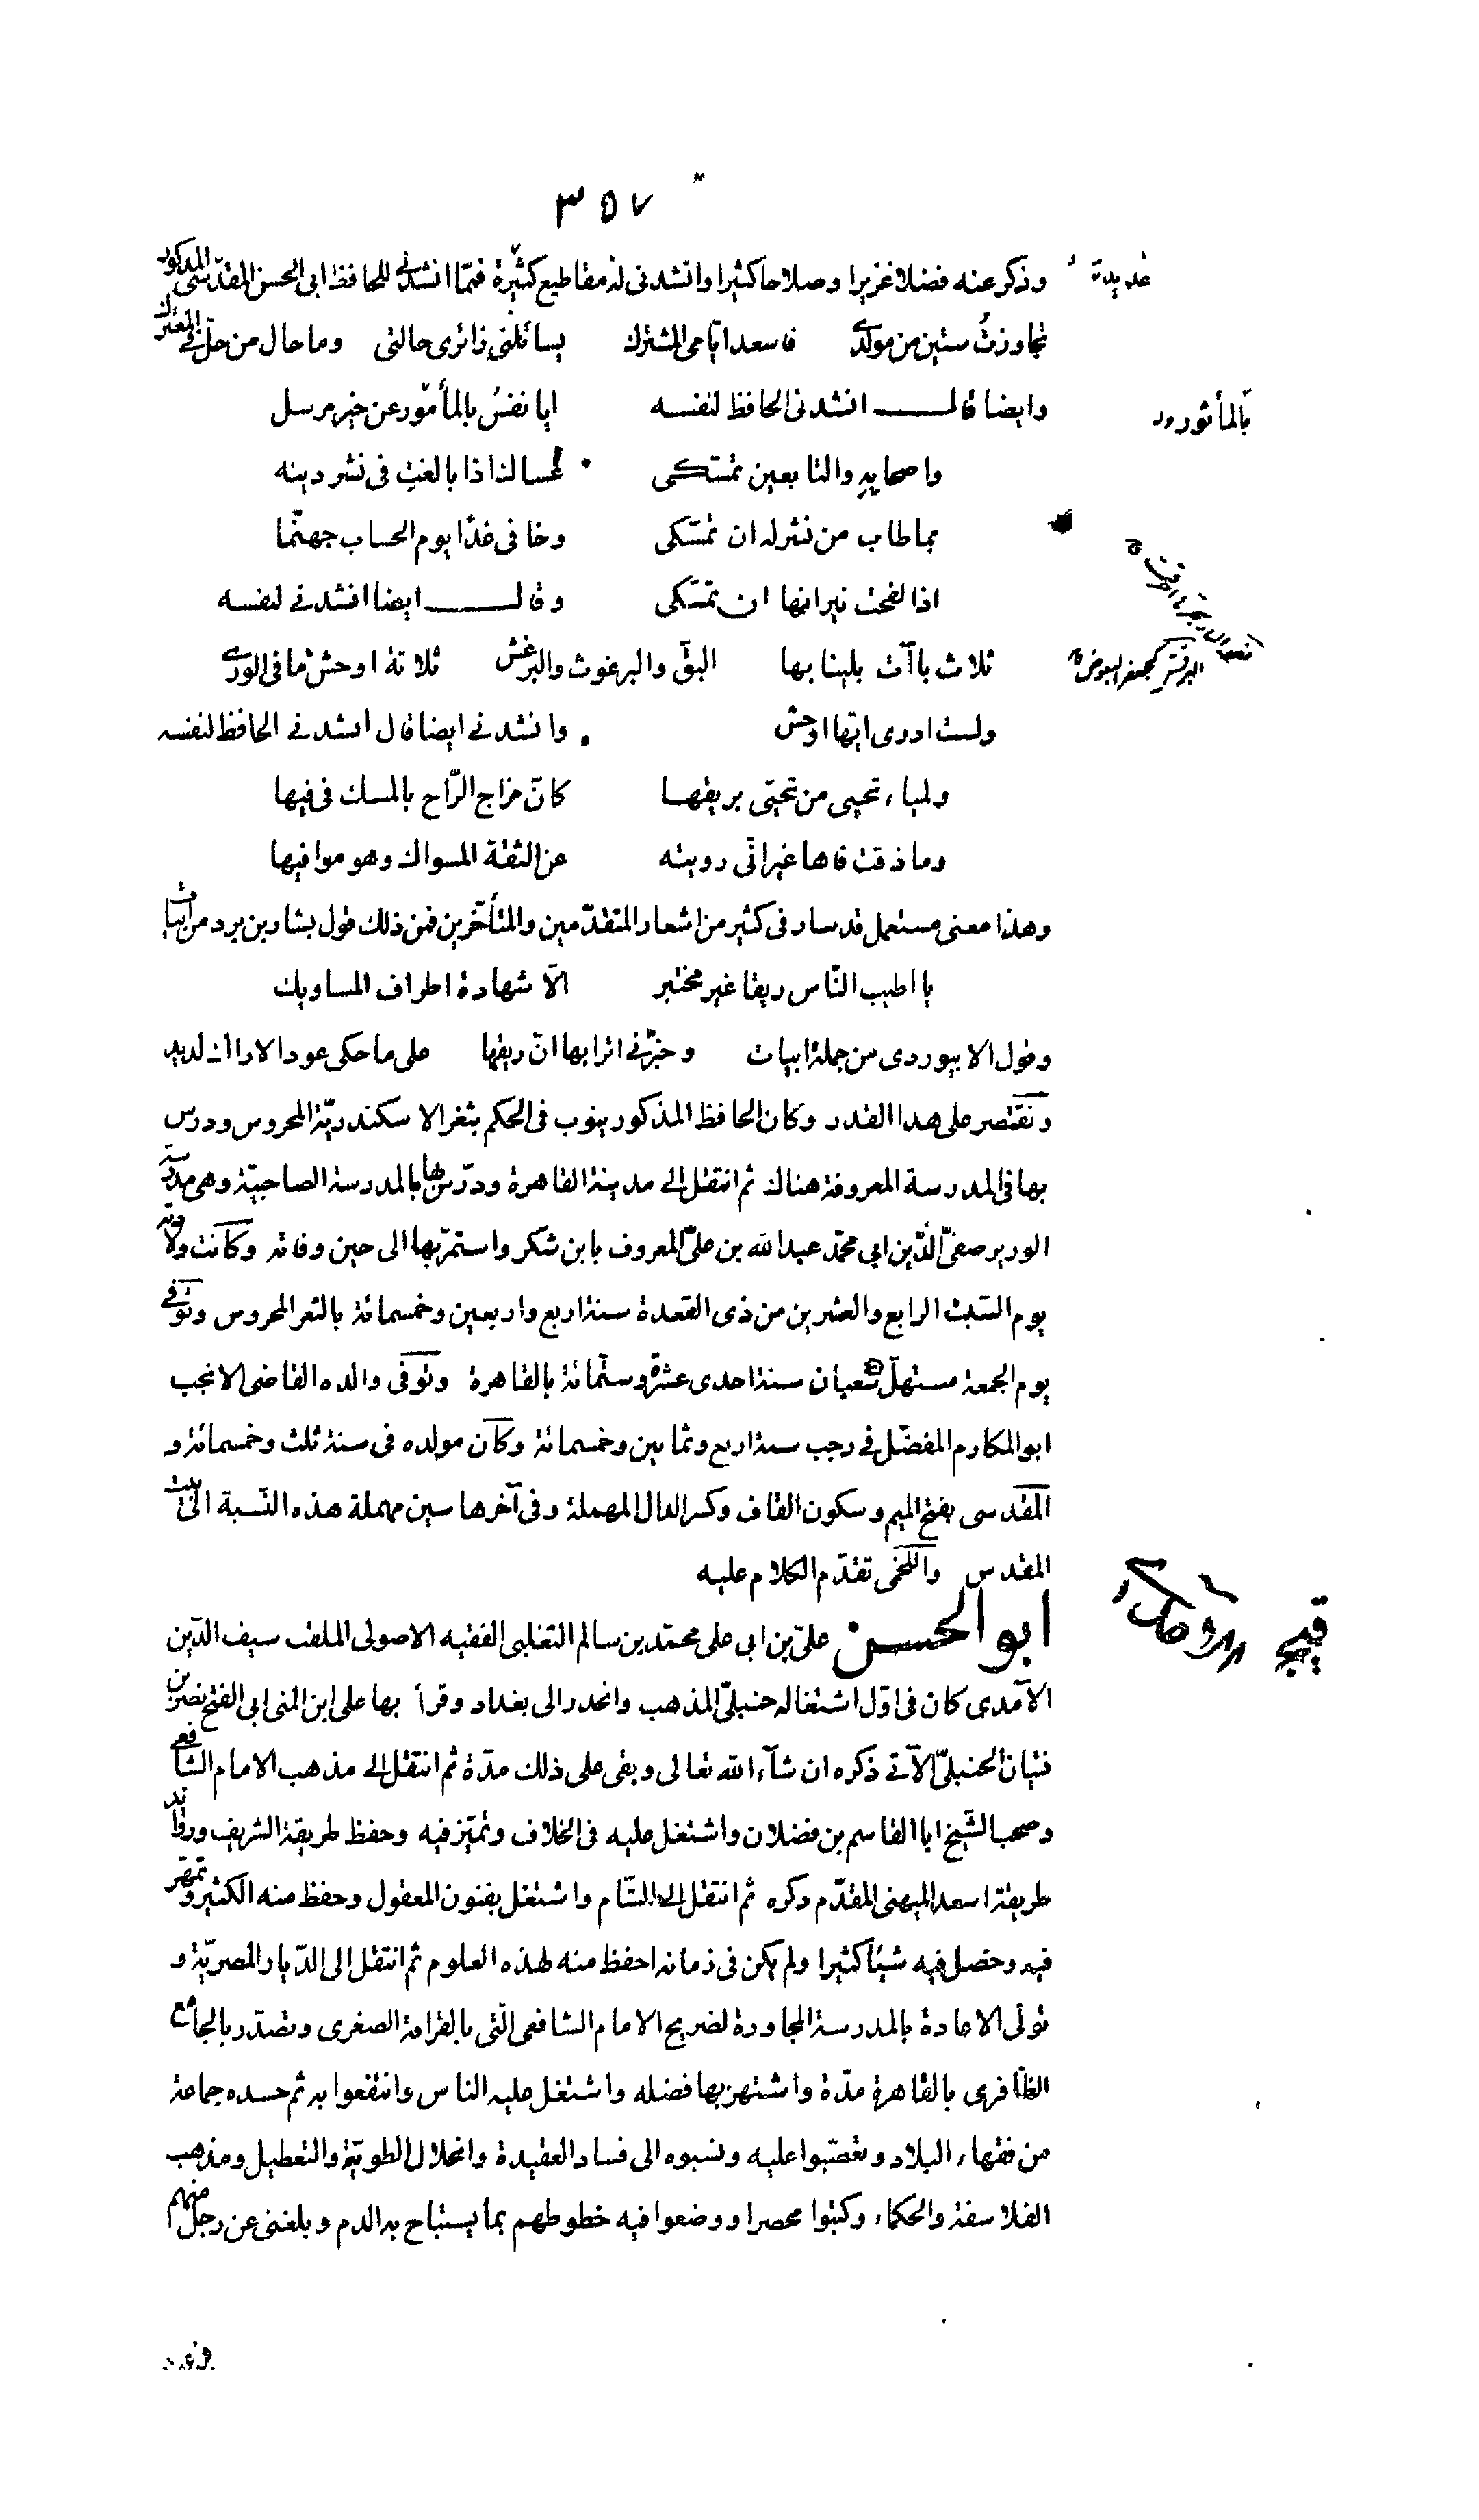 ٣٥٧
وذكر عنه فضلا غزيرا وصلاحا كثيرا وانشدنى له مقاطيع كثيرة فمما انشدنى للحافظ ابى الحسن المقدسى المذكور
تجاوزتُ ستين من مولدى فاسعد ايامى المشترك يسائلنى زائرى حالتى وما حال من حل فى المعترك
وايضا قال انشدنى الحافظ لنفسه ايا نفسُ بالمأمور عن خير مرسل
بالمأثور
واصحابه والتابعين تمسّكى لعساك اذا بالغتِ فى نشر دينه
بما طاب من نشر له ان تمسّكى وخافى غدًا يوم الحساب جهنّما
اذا لفحت نيرانها ان تمسّكى وقال ايضا انشدنى لنفسه
ثلاث باآت بلينا بها البقّ والبرغوث والبرغش ثلاثة اوحش ما فى الورى
ولست ادرى ايّها اوحش وانشدنى ايضا قال انشدنى الحافظ لنفسه
ولمياء تحيى من تحيّى بريقها كانّ مزاج الرّاح بالمسك فى فيها
وما ذقت فاها غير انّى رويته عن الثقة المسواك وهو موافيها
وهذا معنى مستعمل قد سار فى كثير من اشعار المتقدّمين والمتأخّرين فمن ذلك قول بشار بن برد من ابيات
يا اطيب النّاس ريقا غير مختبر الّا شهادة اطراف المساويك
وقول الابيوردى من جملة ابيات وخبّرنى اترابها انّ ريقها على ما حكى عود الاراك لذيذ
ونقتصر على هذا القدر وكان الحافظ المذكور ينوب فى الحكم بثغر الاسكندريّة المحروس ودرس
بها فى المدرسة المعروفة هناك ثم انتقل الى مدينة القاهرة ودرّس بها بالمدرسة الصاحبيّة وهى مدرسة
الوزير صفىّ الدّين ابى محمّد عبد الله بن علىّ المعروف بابن شكر واستمرّ بها الى حين وفاته وكانت ولادته
يوم السّبت الرابع والعشرين من ذى القعدة سنة اربع واربعين وخمسمائة بالثغر المحروس وتوفى
يوم الجمعة مستهلّ شعبان سنة احدى عشرة وستّمائة بالقاهرة وتوفّى والده القاضى الانجب
ابو المكارم المفضّل فى رجب سنة اربع وثمانين وخمسمائة وكان مولده فى سنة ثلث وخمسمائة و
المقدسى بفتح الميم وسكون القاف وكسر الدال المهملة وفى آخرها سين مهملة هذه النّسبة الى بيت
المقدس واللخمى تقدّم الكلام عليه
ابو الحسن علىّ بن ابى على محمّد بن سالم التغلبى الفقيه الاصولى الملقب سيف الدّين
الآمدى كان فى اوّل اشتغاله حنبلىّ المذهب وانحدر الى بغداد وقرأ بها على ابن المنى ابى الفتح نصر بن
فتيان الحنبلىّ الآتى ذكره ان شآء الله تعالى وبقى على ذلك مدّة ثم انتقل الى مذهب الامام الشّافعى
وصحب الشّيخ ابا القاسم بن فضلان واشتغل عليه فى الخلاف وتميّز فيه وحفظ طريقة الشريف وزوائد
طريقة اسعد الميهنى المقدّم ذكره ثم انتقل الى الشّام واشتغل بفنون المعقول وحفظ منه الكثير وتمهّر
فيه وحصل فيه شيئا كثيرا ولم يكن فى زمانه احفظ منه لهذه العلوم ثم انتقل الى الدّيار المصريّة و
تولّى الاعادة بالمدرسة المجاورة لضريح الامام الشافعى الّتى بالقرافة الصغرى وتصدّر بالجامع
الظّافرى بالقاهرة مدّة واشتهر بها فضله واشتغل عليه الناس وانتفعوا به ثم حسده جماعة
من فقهاء البلاد وتعصّبوا عليه ونسبوه الى فساد العقيدة وانحلال الطويّة والتعطيل ومذهب
الفلاسفة والحكماء وكتبوا محضرا ووضعوا فيه خطوطهم بما يستباح به الدم وبلغنى عن رجل منهم